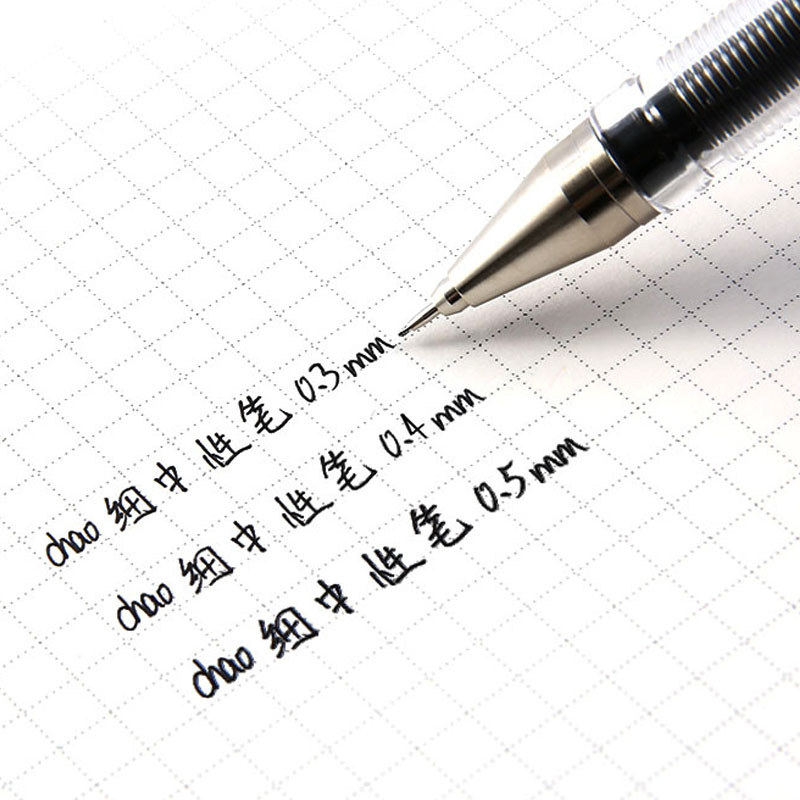 chao 细中性笔 0.3mm
chao 细中性笔 0.4mm
chao 细中性笔 0.5mm